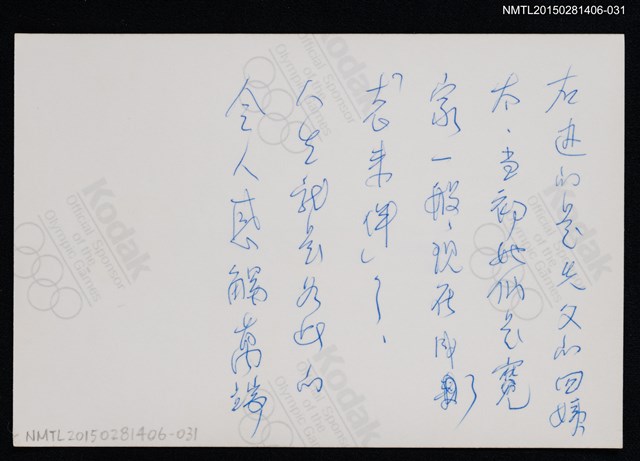 NMTL20150281406-031
右邊的是先父的四姨
太、當初她們是寃
家一般,現在成了
「老來伴」了、
人生就是如此的
令人感觸萬端
Kodak
Official Sponsor
of the
Olympic Games
Kodak
Official Sponsor
of the
Olympic Games
Kodak
Official Sponsor
of the
Olympic Games
Kodak
NMTL20150281406-031